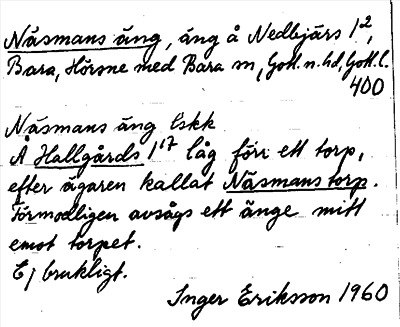 Näsmans äng, äng å Nedbjärs 1²,
Bara, Hörsne med Bara sn, Gotl. n. hd, Gotl. l.
400
Näsmans äng lskk
Å Hallgårds 1¹⁷ låg förr ett torp,
efter ägaren kallat Näsmanstorp.
Förmodligen avsågs ett änge mitt
emot torpet.
Ej brukligt.
Inger Eriksson 1960